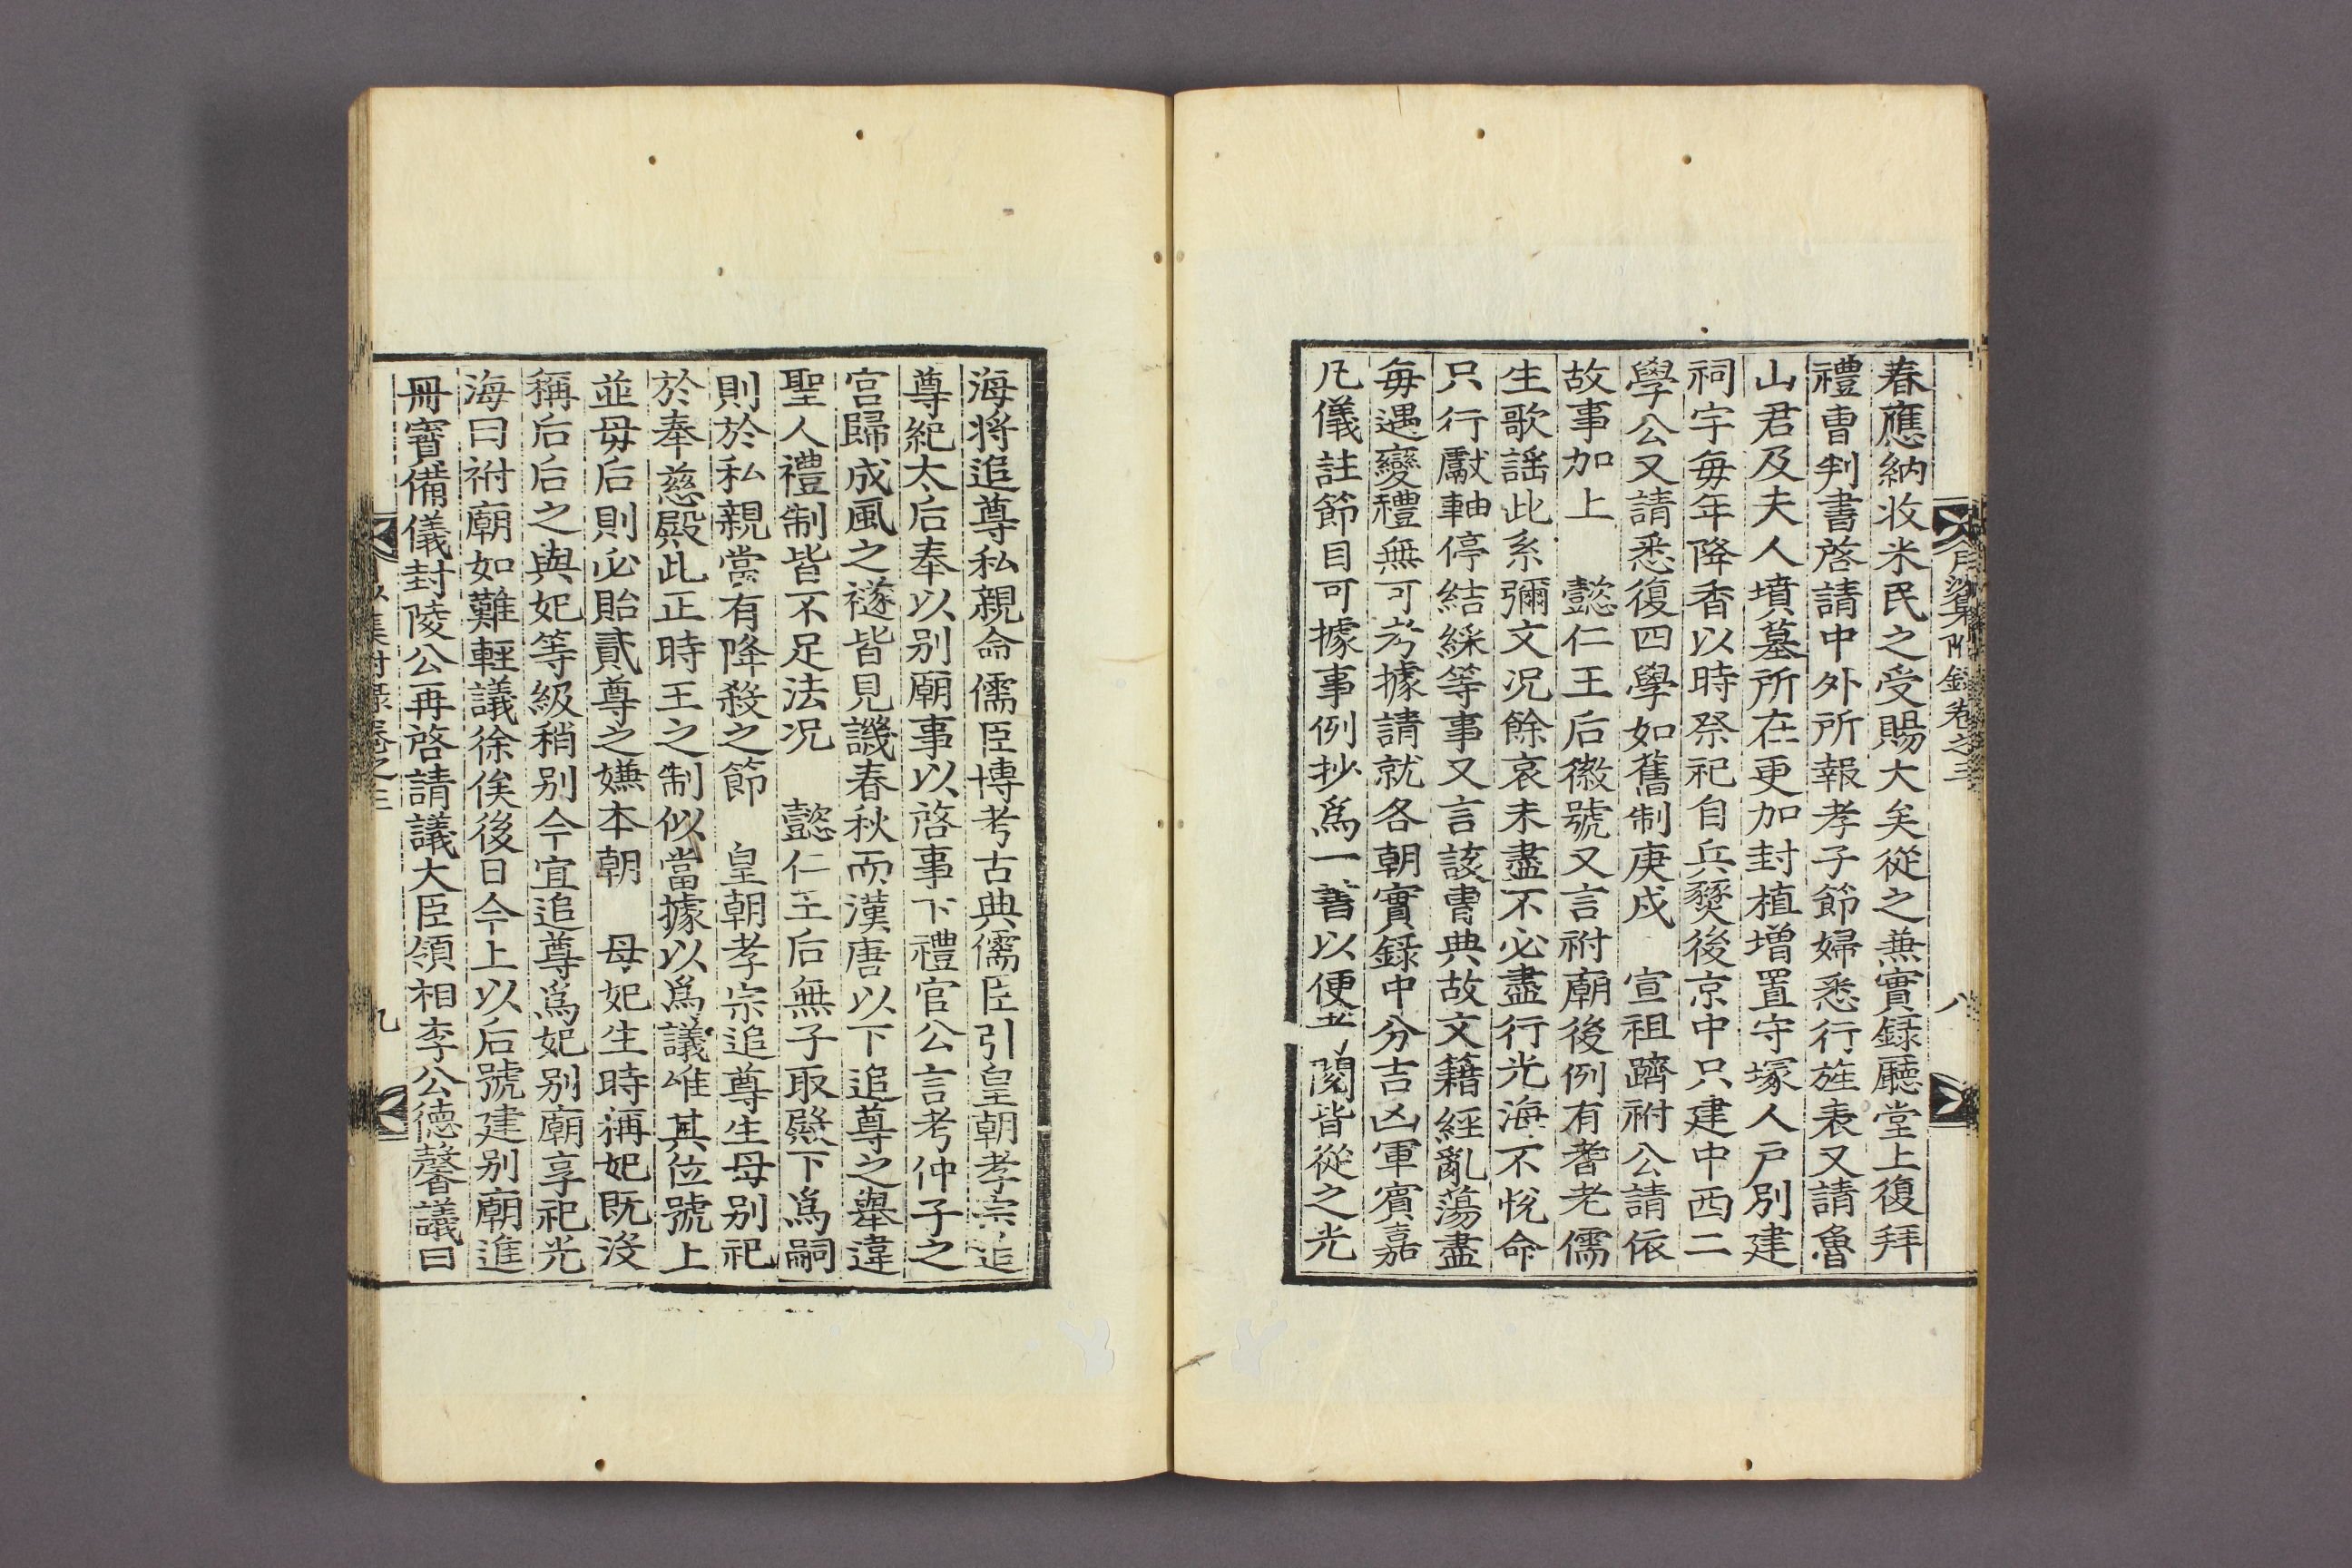 月沙集附錄卷之三
八
春應納收米民之受賜大矣從之兼實錄廳堂上復拜
禮曹判書啓請中外所報孝子節婦悉行旌表又請魯
山君及夫人墳墓所在更加封植增置守塚人戶別建
祠宇每年降香以時祭祀自兵燹後京中只建中西二
學公又請悉復四學如舊制庚戌　宣祖躋祔公請依
故事加上　懿仁王后徽號又言祔廟後例有耆老儒
生歌謠此系彌文况餘哀未盡不必盡行光海不悅命
只行獻軸停結綵等事又言該曹典故文籍經亂蕩盡
每遇變禮無可考據請就各朝實錄中分吉凶軍賓嘉
凡儀註節目可據事例抄爲一書以便考閱皆從之光
海將追尊私親命儒臣博考古典儒臣引皇朝孝宗追
尊紀太后奉以别廟事以啓事下禮官公言考仲子之
宮歸成風之襚皆見譏春秋而漢唐以下追尊之舉違
聖人禮制皆不足法况　懿仁王后無子取殿下爲嗣
則於私親當有降殺之節　皇朝孝宗追尊生母别祀
於奉慈殿此正時王之制似當據以爲議惟其位號上
並母后則必貽貳尊之嫌本朝　母妃生時稱妃既沒
稱后后之與妃等級稍别今宜追尊爲妃别廟享祀光
海曰祔廟如難輕議徐俟後日今上以后號建别廟進
冊寶備儀封陵公再啓請議大臣領相李公德馨議曰
集附錄卷之三
九